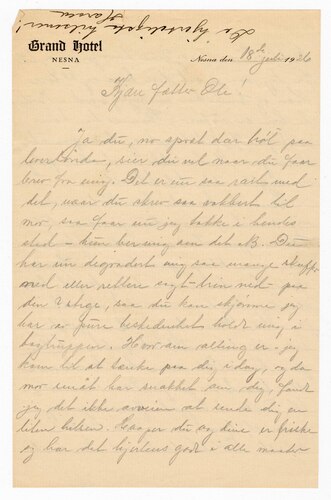 De hjerteligste hilsener!
Grand Hotel
NESNA
Nesna den 18de juli 1926
Kjære fætter Ole!
Ja du, no sprøt dar trøl paa
sier du vel naar du faar
brev fra mig. Det er nu saa rart med
det, naar du skrev saa vakkert til
mor, saa faar nu jeg takke i hendes
sted – hun ber mig om det N.B. Du
har nu degradert mig saa mange
ned eller rettere sagt trin ned paa
den saa du kan skjønne jeg
har av pure beskedenhet holdt mig i
baktruppen. Hvordan allting er – jeg
kom til at tænke paa dig i dag, og da
mor snart har snakket om dig, fandt
jeg det ikke avveien at sende dig en
liten hilsen. Haaper du og dine er friske
og har det hjertens godt i alle maater